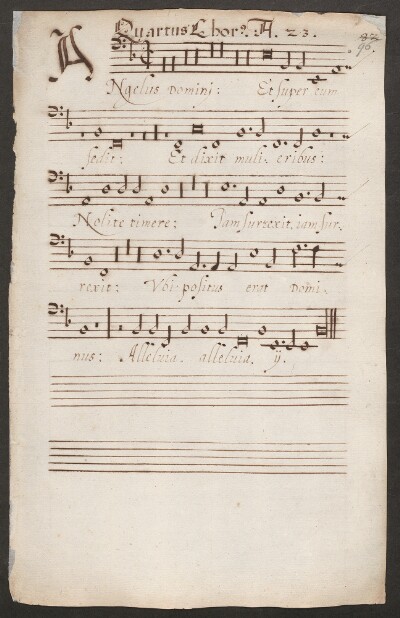 Quartus Chor9. A. 23.
ANgelus Domini: Et super eum
sedit: Et dixit muli- eribus:
Nolite timere: Jam surrexit, iam sur-
rexit: Vbi positus erat Domi-
nus: Alleluia. alleluia. ij.